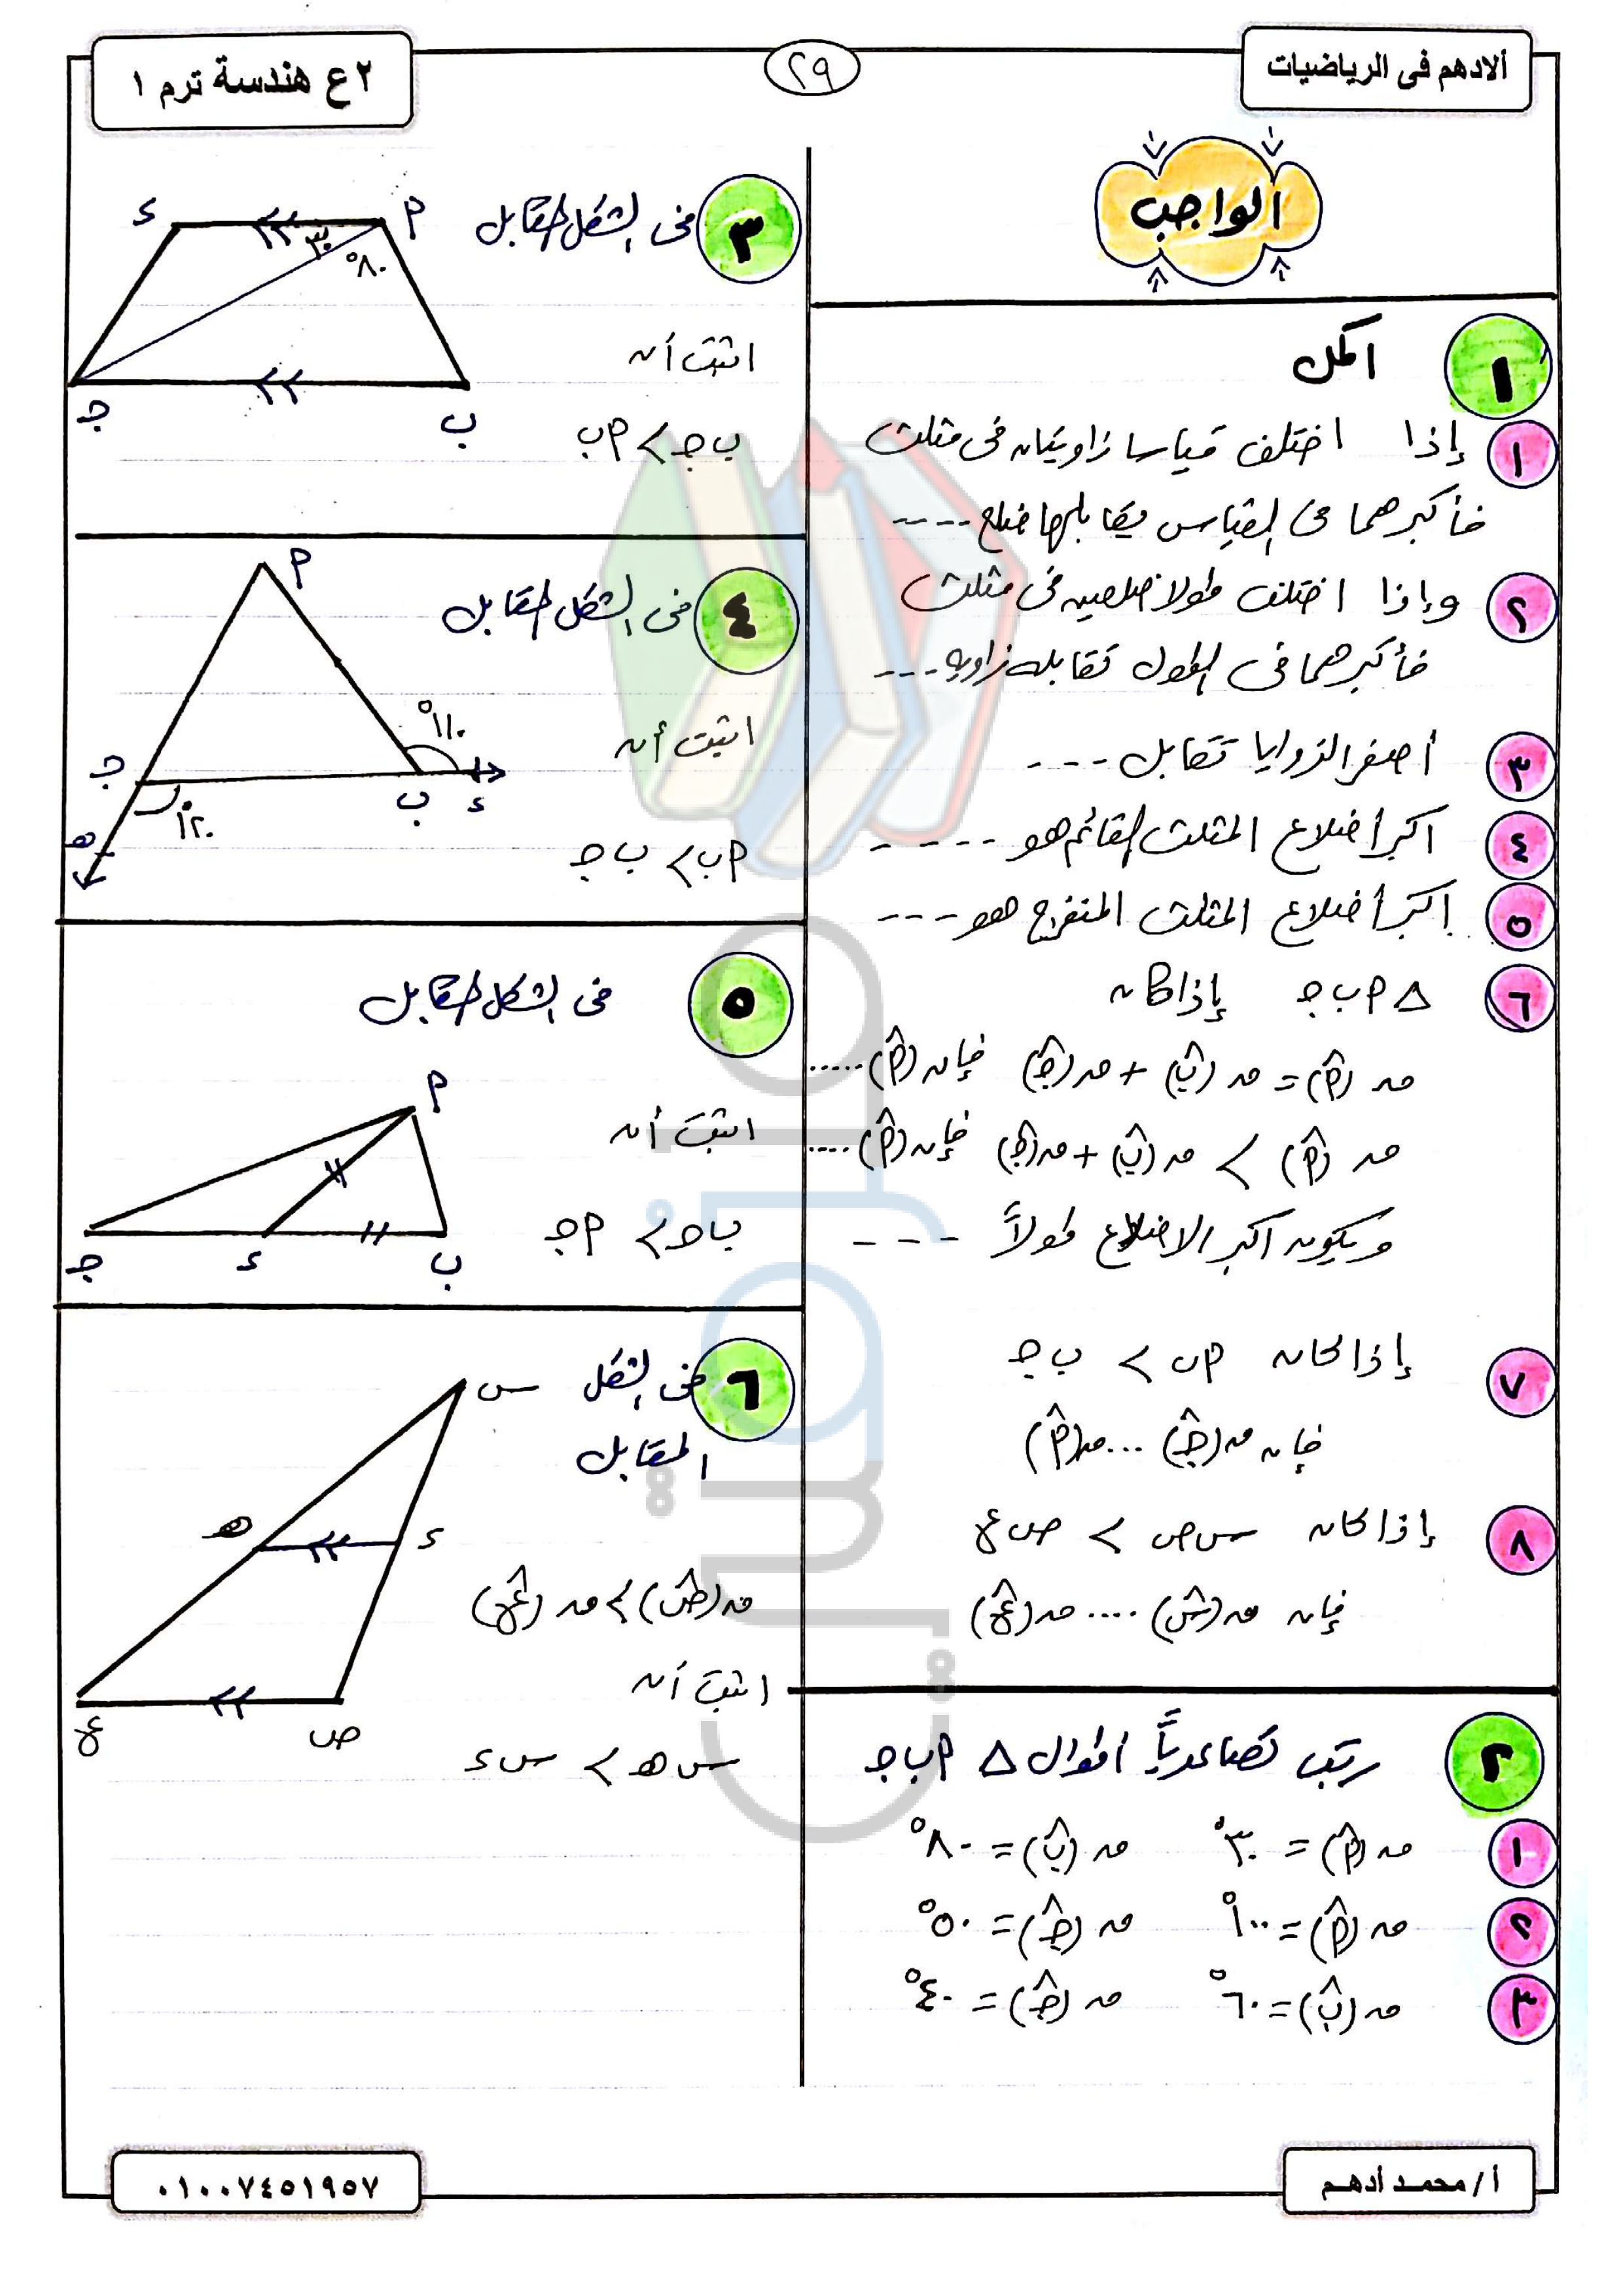 ألادهم فى الرياضيات
٢٩
٢ع هندسة ترم ١
الواجب
١ اكمل
١ إذا اختلف قياسا زاويتان فى مثلث
فأكبرهما فى القياس يقابلها ضلع ----
٢ وإذا اختلف طولا ضلعين فى مثلث
فأكبرهما فى الطول تقابله زاوية ---
٣ أصغر الزوايا تقابل ---
٤ اكبر أضلاع المثلث القائم هو -----
٥ اكبر أضلاع المثلث المنفرج هو ---
٦ △ ٩ ب جـ إذا كان
ق (٩̂) = ق (ب̂) + ق (جـ̂) فإن (٩̂) .....
ق (٩̂) > ق (ب̂) + ق (جـ̂) فإن (٩̂) ....
ويكون اكبر الاضلاع طولاً ---
٧ إذا كان ٩ ب > ب جـ
فإن ق (جـ̂) ... ق (٩̂)
٨ إذا كان س ص > ص ع
فإن ق (س̂) .... ق (ع̂)
٢ رتب تصاعدياً اطوال △ ٩ ب جـ
١ ق (٩̂) = ٣٠° ق (ب̂) = ٨٠°
٢ ق (٩̂) = ١٠٠° ق (جـ̂) = ٥٠°
٣ ق (ب̂) = ٦٠° ق (جـ̂) = ٤٠°
٣ فى الشكل المقابل
٩
ء
٣٠°
٨٠°
جـ
ب
اثبت أن
ب جـ > ٩ ب
٤ فى الشكل المقابل
٩
١١٠°
جـ
ب
ء
١٢٠°
هـ
اثبت أن
٩ ب > ب جـ
٥ فى الشكل المقابل
٩
جـ
ء
ب
اثبت أن
ب جـ > ٩ جـ
٦ فى الشكل
المقابل
س
هـ
ء
ع
ص
ق (ص̂) > ق (ع̂)
اثبت أن
س هـ > س ء
أ / محمد أدهم
٠١٠٠٧٤٥١٩٥٧